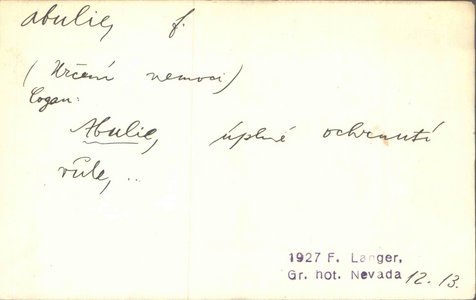 abulie, f.
(Určení nemoci)
Cogan:
Abulie, úplné ochrnutí
vůle, ..
1927 F. Langer,
Gr. hot. Nevada 12. 13.